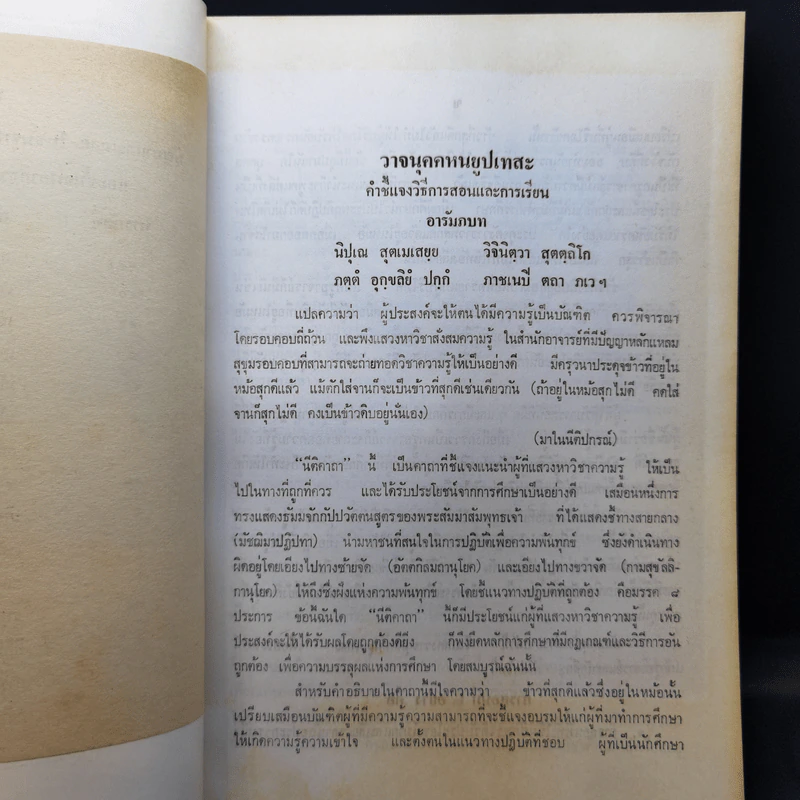 วาจนุคคหนยูปเทสะ
คำชี้แจงวิธีการสอนและการเรียน
อารัมภบท
นิปุเณ สุตเมเสยฺย วิจินิตฺวา สุตตฺถิโก
ภตฺตํ อุกฺขลิยํ ปกฺกํ ภาชเนปิ ตถา ภเว ฯ
แปลความว่า ผู้ประสงค์จะให้ตนได้มีความรู้เป็นบัณฑิต ควรพิจารณา
โดยรอบคอบถี่ถ้วน และพึงแสวงหาวิชาสั่งสมความรู้ ในสำนักอาจารย์ที่มีปัญญาหลักแหลม
สุขุมรอบคอบที่สามารถจะถ่ายทอดวิชาความรู้ให้เป็นอย่างดี มีครุวนาประดุจข้าวที่อยู่ใน
หม้อสุกดีแล้ว แม้ตักใส่จานก็จะเป็นข้าวที่สุกดีเช่นเดียวกัน (ถ้าอยู่ในหม้อสุกไม่ดี คดใส่
จานก็สุกไม่ดี คงเป็นข้าวดิบอยู่นั่นเอง)
(มาในนีติปกรณ์)
“นีติคาถา” นี้ เป็นคาถาที่ชี้แจงแนะนำผู้ที่แสวงหาวิชาความรู้ ให้เป็น
ไปในทางที่ถูกที่ควร และได้รับประโยชน์จากการศึกษาเป็นอย่างดี เสมือนหนึ่งการ
ทรงแสดงธัมมจักกัปปวัตตนสูตรของพระสัมมาสัมพุทธเจ้า ที่ได้แสดงชี้ทางสายกลาง
(มัชฌิมาปฏิปทา) นำมหาชนที่สนใจในการปฏิบัติเพื่อความพ้นทุกข์ ซึ่งยังดำเนินทาง
ผิดอยู่โดยเอียงไปทางซ้ายจัด (อัตตกิลมถานุโยค) และเอียงไปทางขวาจัด (กามสุขัลลิ-
กานุโยค) ให้ถึงซึ่งฝั่งแห่งความพ้นทุกข์ โดยชี้แนวทางปฏิบัติที่ถูกต้อง คือมรรค ๘
ประการ ข้อนี้ฉันใด “นีติคาถา” นี้ก็มีประโยชน์แก่ผู้ที่แสวงหาวิชาความรู้ เพื่อ
ประสงค์จะให้ได้รับผลโดยถูกต้องดียิ่ง ก็พึงยึดหลักการศึกษาที่มีกฎเกณฑ์และวิธีการอัน
ถูกต้อง เพื่อความบรรลุผลแห่งการศึกษา โดยสมบูรณ์ฉันนั้น
สำหรับคำอธิบายในคาถานี้มีใจความว่า ข้าวที่สุกดีแล้วซึ่งอยู่ในหม้อนั้น
เปรียบเสมือนบัณฑิตผู้ที่มีความรู้ความสามารถที่จะชี้แจงอบรมให้แก่ผู้ที่มาทำการศึกษา
ให้เกิดความรู้ความเข้าใจ และตั้งตนในแนวทางปฏิบัติที่ชอบ ผู้ที่เป็นนักศึกษา